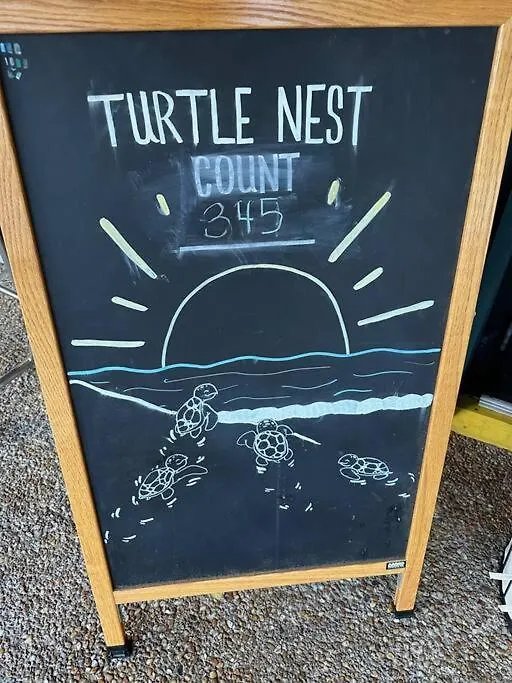 TURTLE NEST
COUNT
345